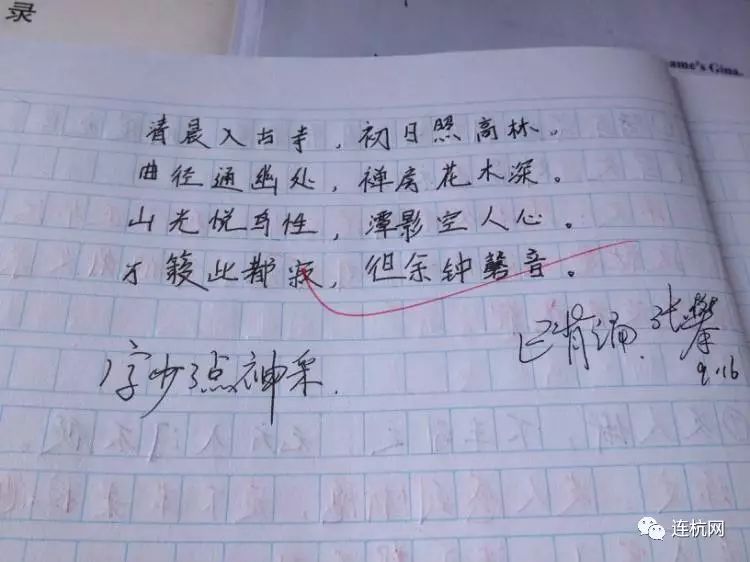 录
ame's Gina.
清晨入古寺，初日照高林。
曲径通幽处，禅房花木深。
山光悦鸟性，潭影空人心。
万籁此都寂，但余钟磬音。
已背诵.张攀
9.16
字少点神采.
连杭网